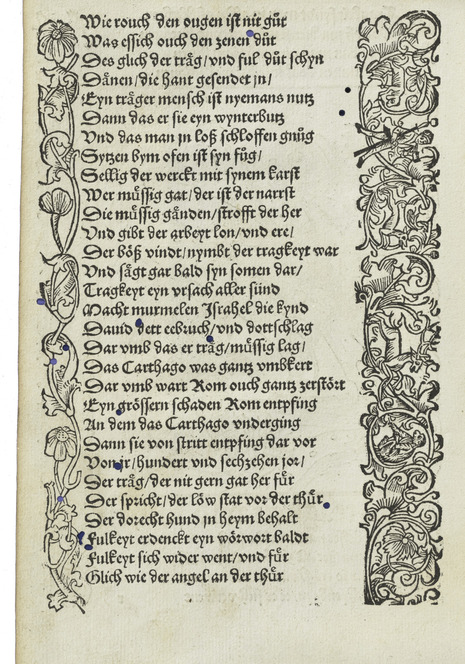 Wie rouch den ougen ist nit gůt
Was essich ouch den zenen důt
Des glich der träg/vnd ful důt schyn
Dänen/die hant gesendet jn/
Eyn träger mensch ist nyemans nutz
Dann das er sie eyn wynterbutz
Vnd das man jn loß schloffen gnůg
Sytzen bym ofen ist syn fůg/
Sellig der werckt mit synem karst
Wer můssig gat/der ist der narrst
Die můssig gänden/strofft der her
Vnd gibt der arbeyt lon/vnd ere/
Der böß vindt/nymbt der tragkeyt war
Vnd sägt gar bald syn somen dar/
Tragkeyt eyn vrsach aller sünd
Macht murmelen Israhel die kynd
Dauid dett eebruch/vnd dottschlag
Dar vmb das er träg/můssig lag/
Das Carthago was gantz vmbkert
Dar vmb wart Rom ouch gantz zerstört
Eyn grössern schaden Rom entpfing
An dem das Carthago vnderging
Dann sie von stritt entpfing dar vor
Von jr/hundert vnd sechzehen jor/
Der träg/der nit gern gat her für
Der spricht/der löw stat vor der thür
Der dorecht hund jn heym behalt
Fulkeyt erdenckt eyn wörwort baldt
Fulkeyt sich wider went/vnd für
Glich wie der angel an der thür